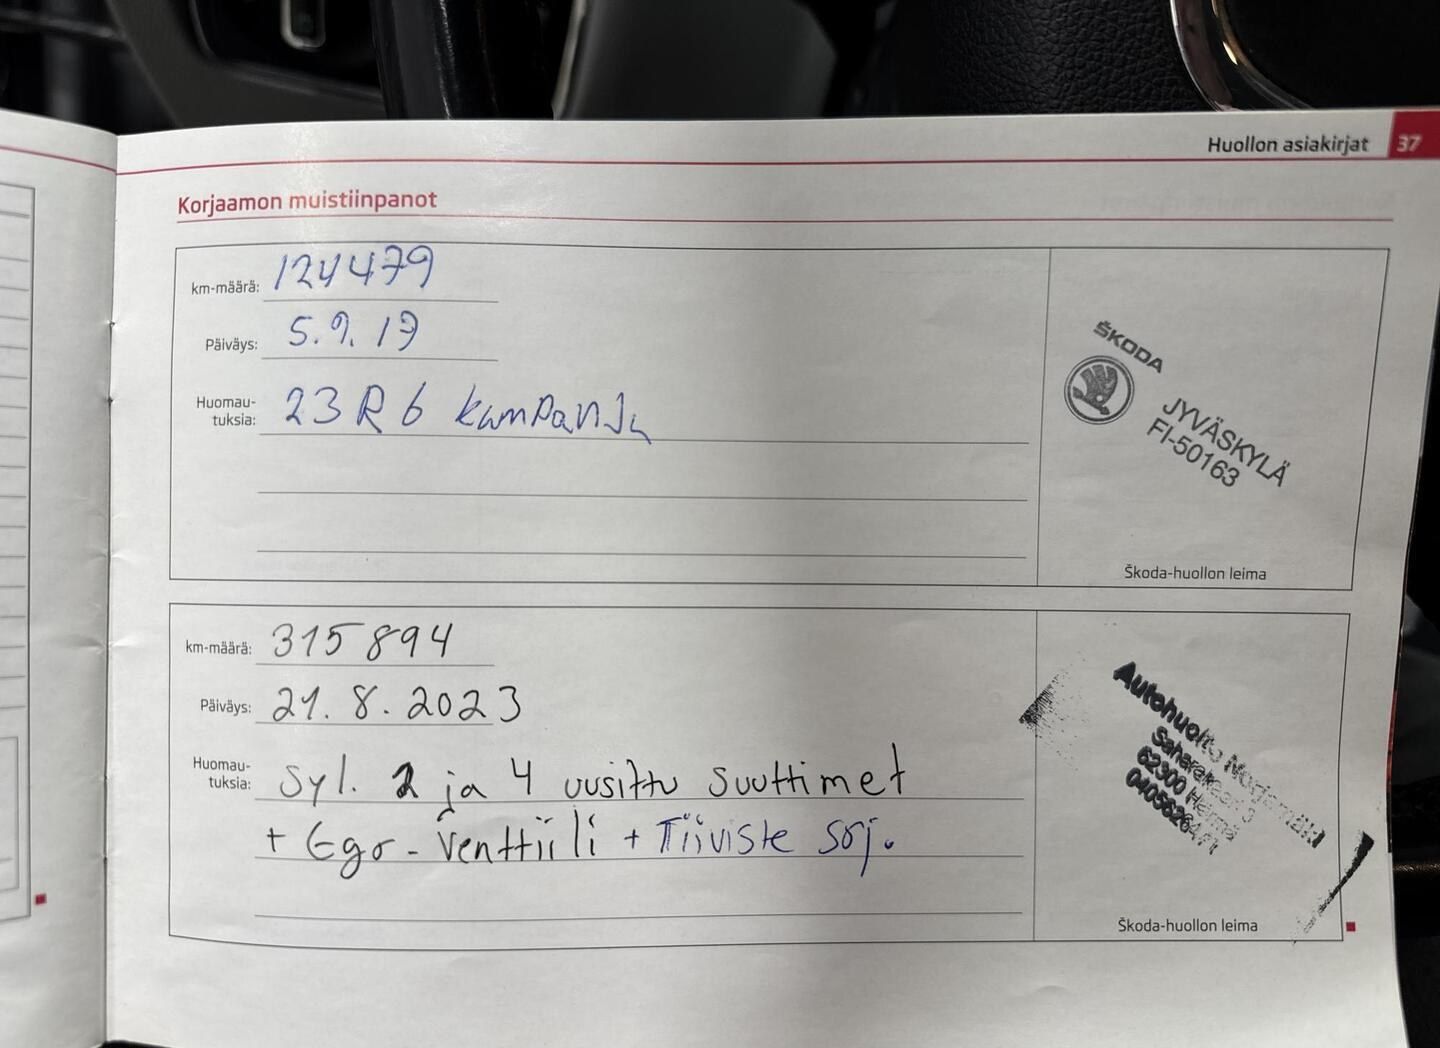 Huollon asiakirjat 37
Korjaamon muistiinpanot
km-määrä: 124479
Päiväys: 5.9.19
Huomau-
tuksia: 23R6 kampanja
ŠKODA
JYVÄSKYLÄ
FI-50163
Škoda-huollon leima
km-määrä: 315894
Päiväys: 21.8.2023
Huomau-
tuksia: Syl. 2 ja 4 uusittu suuttimet
+ Egr-venttiili + Tiiviste srj.
Autohuolto Morjamäki
62300 Härmä
Škoda-huollon leima